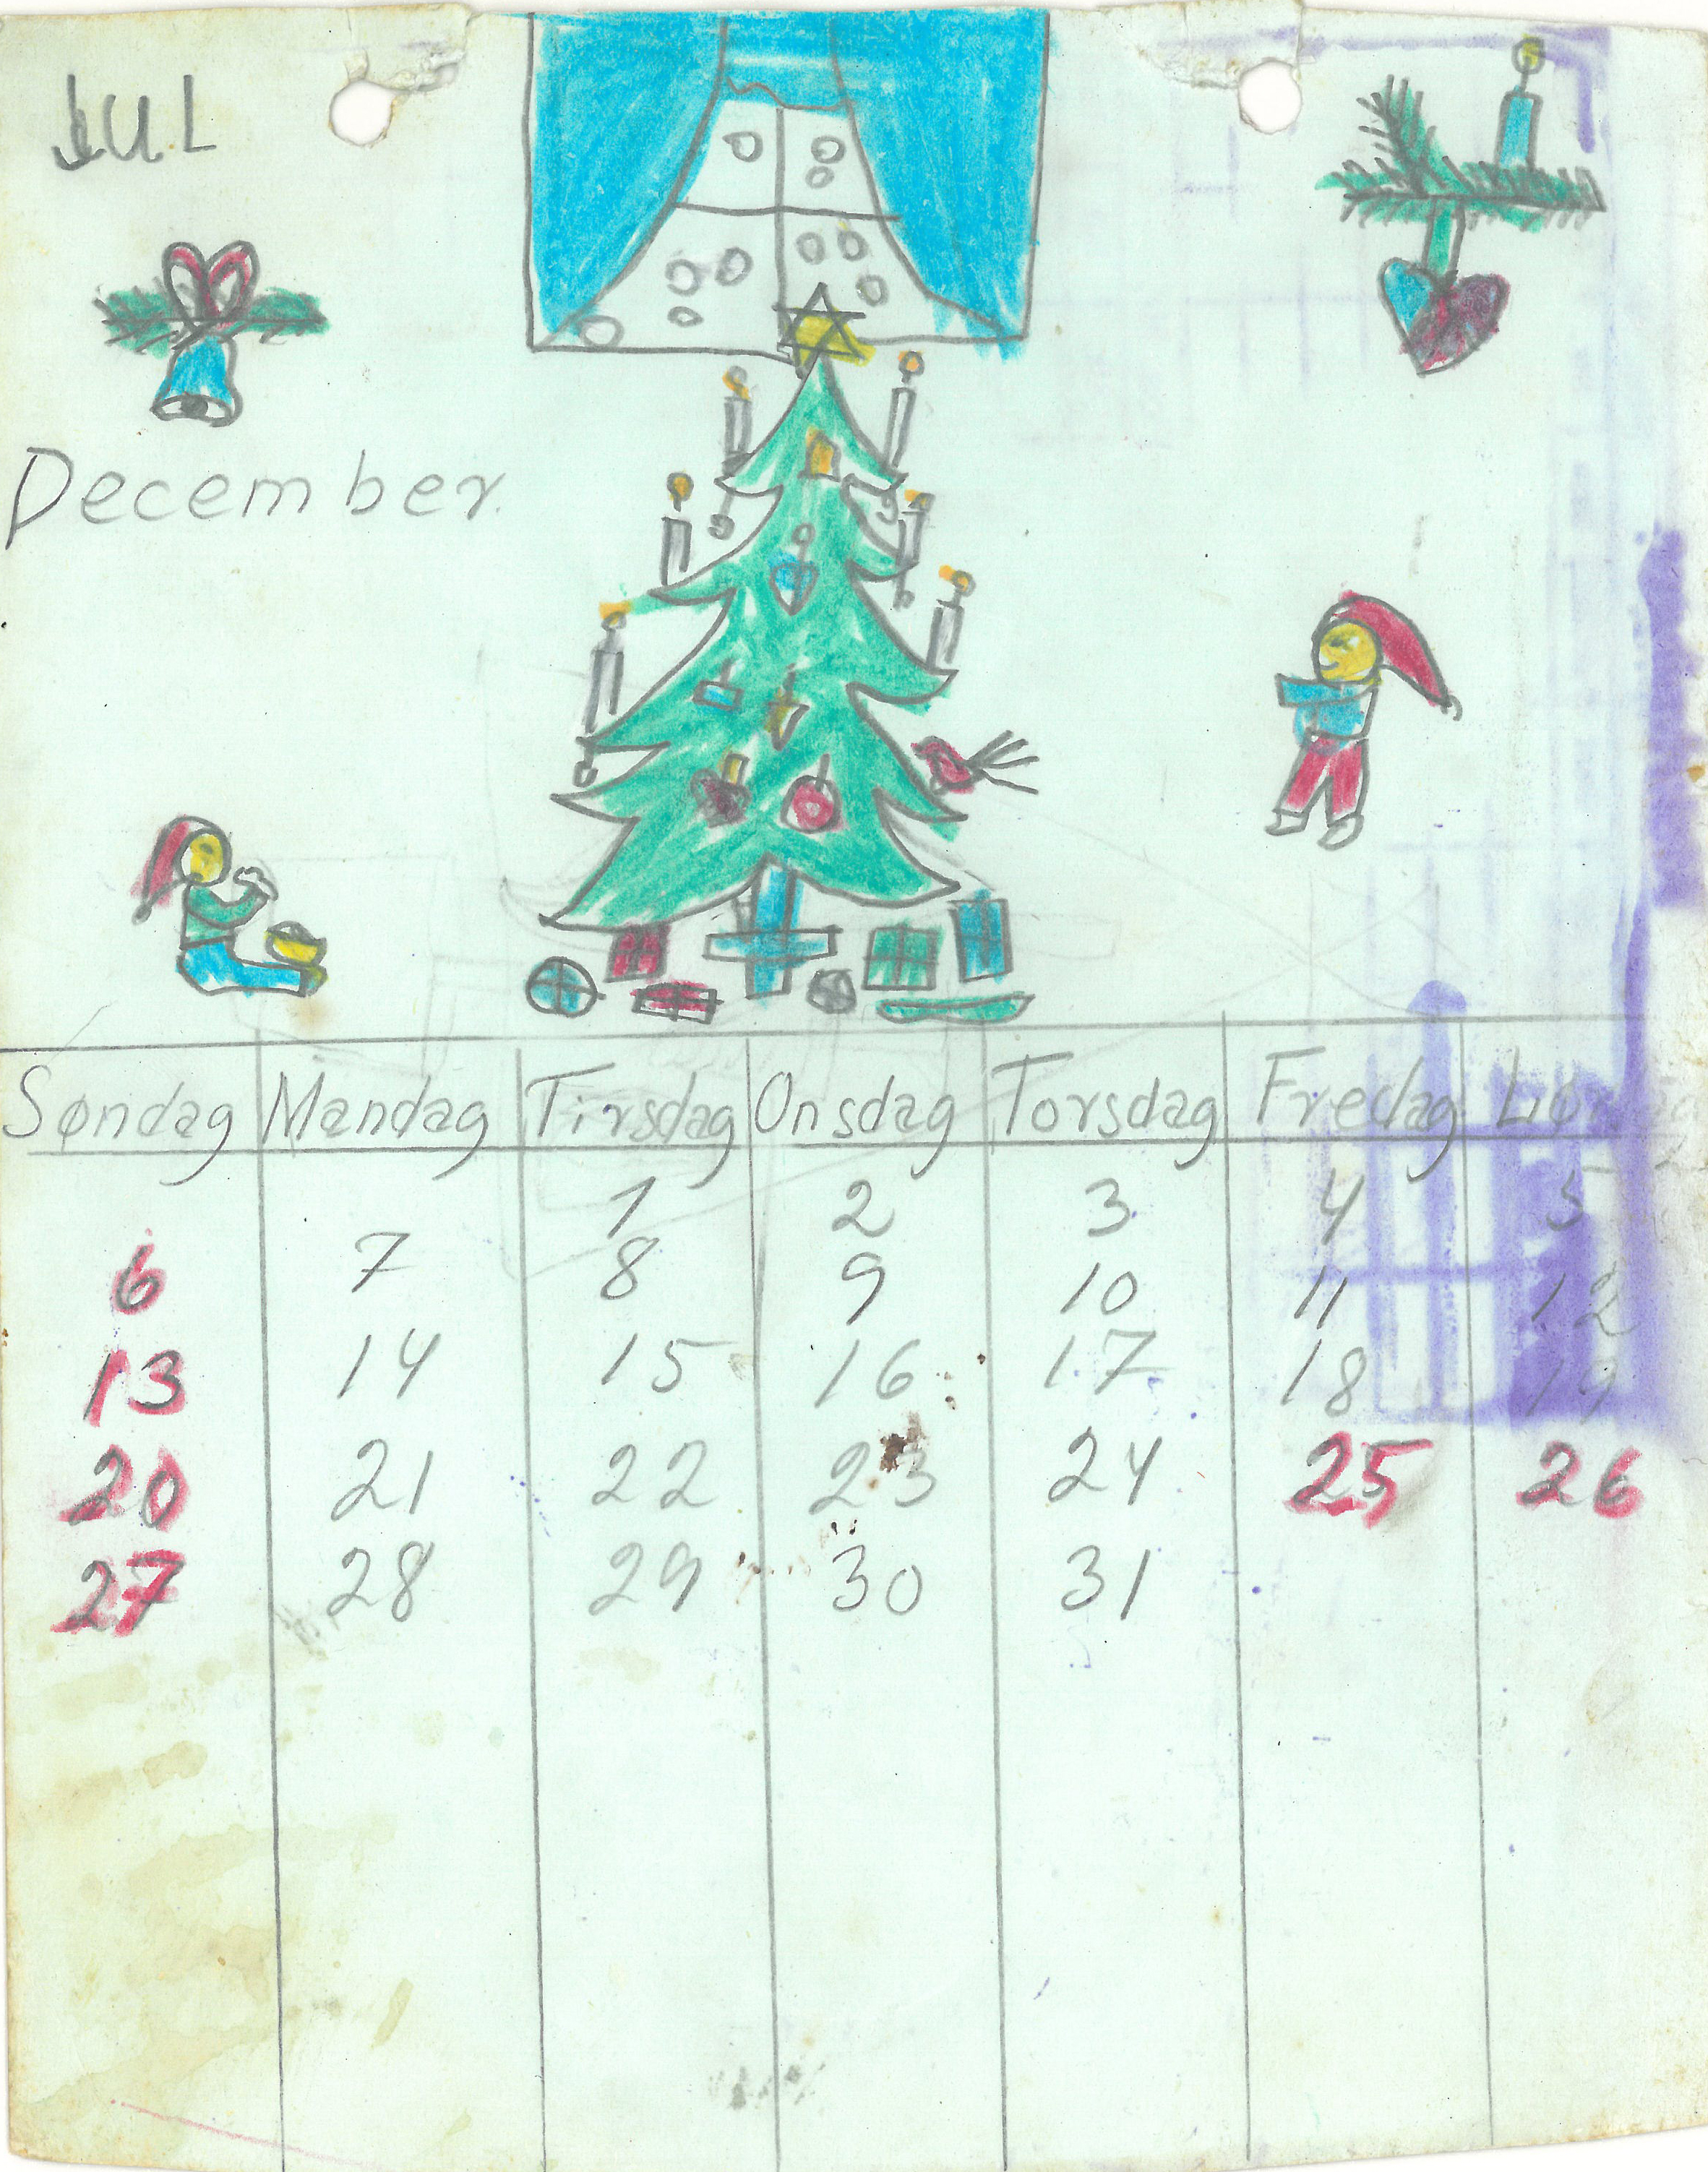 JUL
December.
Søndag Mandag Tirsdag Onsdag Torsdag Fredag
1 2 3 4 5
6 7 8 9 10 11 12
13 14 15 16 17 18 19
20 21 22 23 24 25 26
27 28 29 30 31